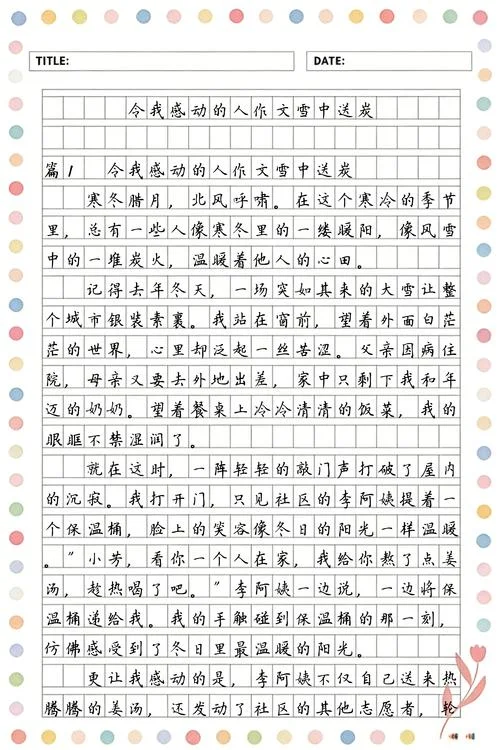 TITLE:
DATE:
令我感动的人作文雪中送炭
篇1 令我感动的人作文雪中送炭
寒冬腊月，北风呼啸。在这个寒冷的季节
里，总有一些人像寒冬里的一缕暖阳，像风雪
中的一堆炭火，温暖着他人的心田。
记得去年冬天，一场突如其来的大雪让整
个城市银装素裹。我站在窗前，望着外面白茫
茫的世界，心里却泛起一丝苦涩。父亲因病住
院，母亲又要去外地出差，家中只剩下我和年
迈的奶奶。望着餐桌上冷冷清清的饭菜，我的
眼眶不禁湿润了。
就在这时，一阵轻轻的敲门声打破了屋内
的沉寂。我打开门，只见社区的李阿姨提着一
个保温桶，脸上的笑容像冬日的阳光一样温暖
。"小芳，看你一个人在家，我给你熬了点姜
汤，趁热喝了吧。"李阿姨一边说，一边将保
温桶递给我。我的手触碰到保温桶的那一刻，
仿佛感受到了冬日里最温暖的阳光。
更让我感动的是，李阿姨不仅自己送来热
腾腾的姜汤，还发动了社区的其他志愿者，轮